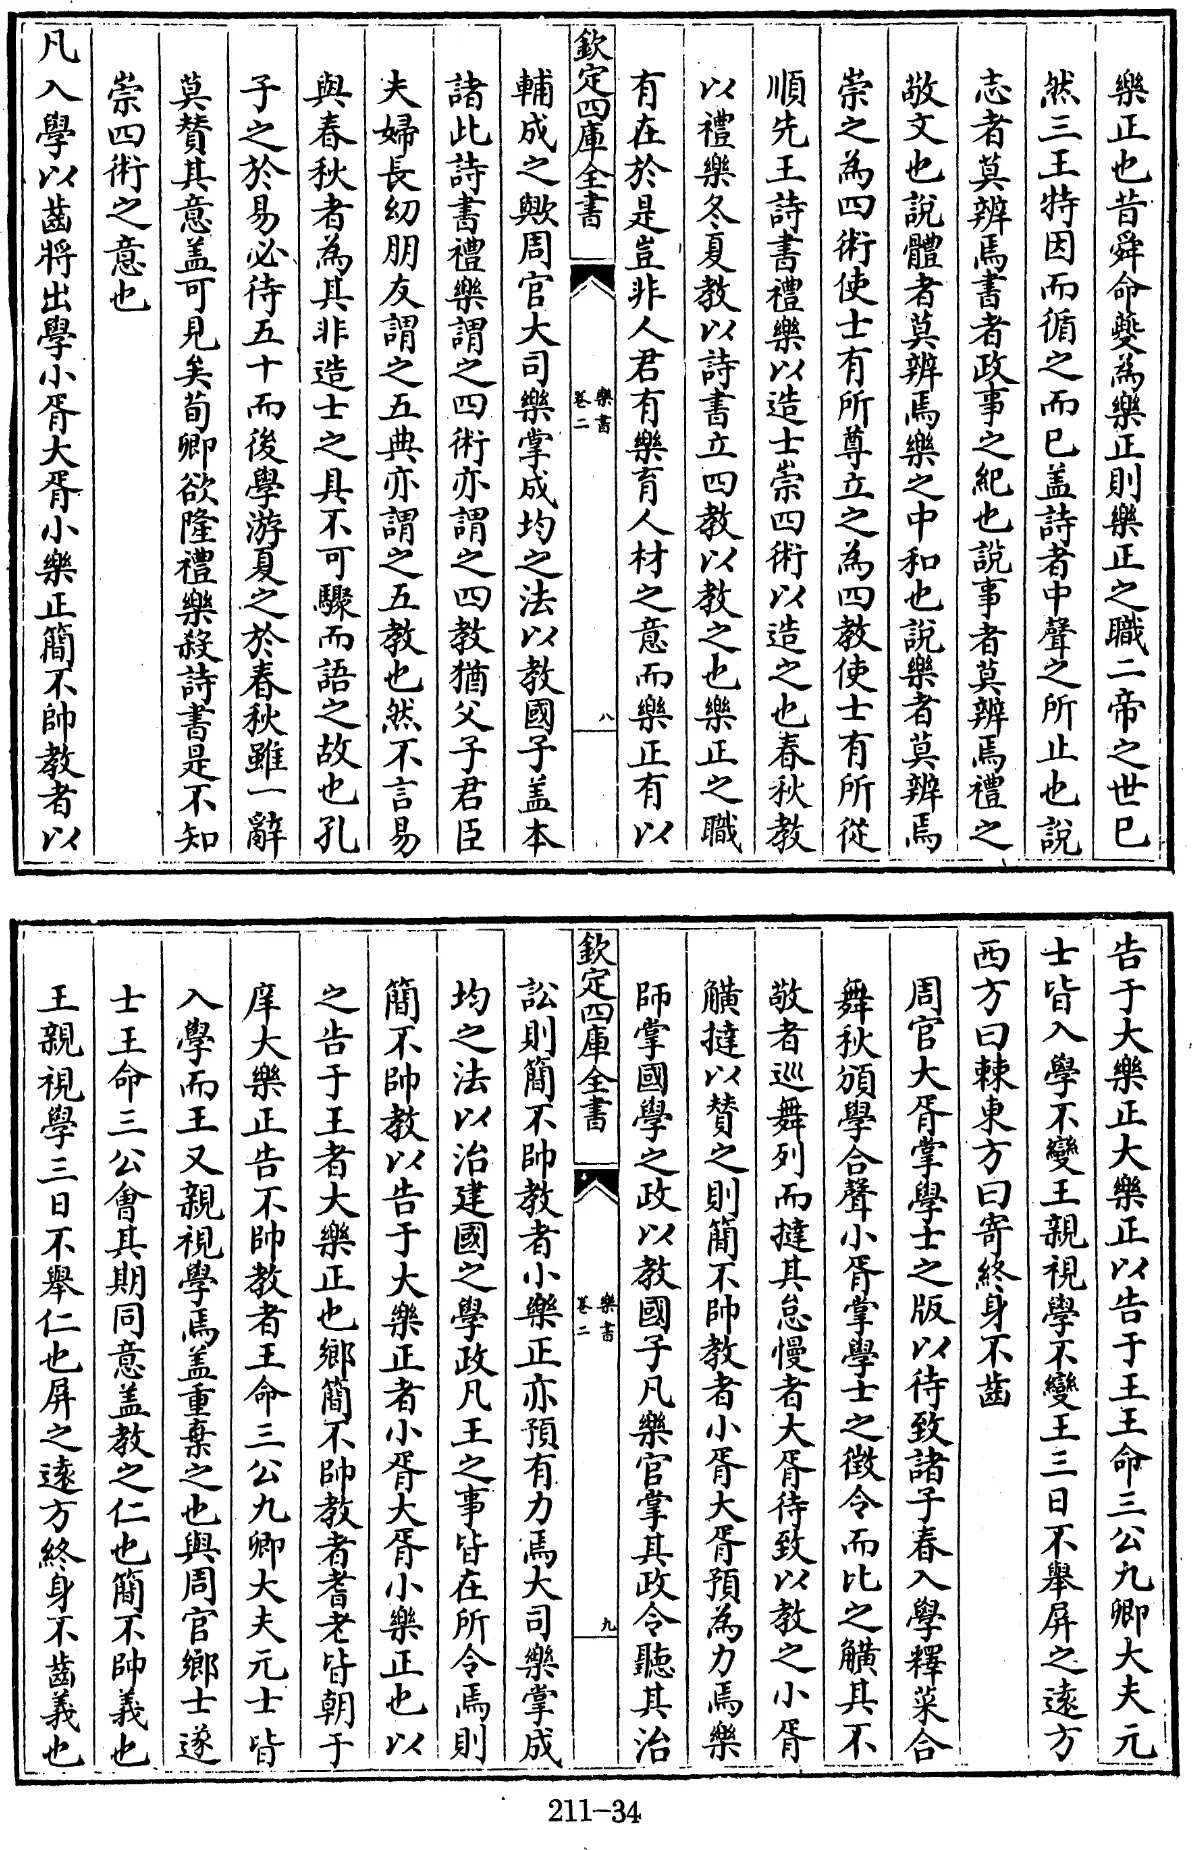 樂正也昔舜命夔為樂正則樂正之職二帝之世已
然三王特因而循之而已盖詩者中聲之所止也說
志者莫辨焉書者政事之紀也說事者莫辨焉禮之
敬文也說體者莫辨焉樂之中和也說樂者莫辨焉
崇之為四術使士有所尊立之為四教使士有所從
順先王詩書禮樂以造士崇四術以造之也春秋教
以禮樂冬夏教以詩書立四教以教之也樂正之職
有在於是豈非人君有樂育人材之意而樂正有以
欽定四庫全書
樂書
卷二
八
輔成之歟周官大司樂掌成均之法以教國子盖本
諸此詩書禮樂謂之四術亦謂之四教猶父子君臣
夫婦長幼朋友謂之五典亦謂之五教也然不言易
與春秋者為其非造士之具不可驟而語之故也孔
子之於易必待五十而後學游夏之於春秋雖一辭
莫賛其意盖可見矣荀卿欲隆禮樂殺詩書是不知
崇四術之意也
凡入學以齒將出學小胥大胥小樂正簡不帥教者以
告于大樂正大樂正以告于王王命三公九卿大夫元
士皆入學不變王親視學不變王三日不舉屏之遠方
西方曰棘東方曰寄終身不齒
周官大胥掌學士之版以待致諸子春入學釋菜合
舞秋頒學合聲小胥掌學士之徵令而比之觵其不
敬者巡舞列而撻其怠慢者大胥待致以教之小胥
觵撻以賛之則簡不帥教者小胥大胥預為力焉樂
師掌國學之政以教國子凡樂官掌其政令聽其治
欽定四庫全書
樂書
卷二
九
訟則簡不帥教者小樂正亦預有力焉大司樂掌成
均之法以治建國之學政凡王之事皆在所令焉則
簡不帥教以告于大樂正者小胥大胥小樂正也以
之告于王者大樂正也鄉簡不帥教者耆老皆朝于
庠大樂正告不帥教者王命三公九卿大夫元士皆
入學而王又親視學焉盖重棄之也與周官鄉士遂
士王命三公會其期同意盖教之仁也簡不帥義也
王親視學三日不舉仁也屏之遠方終身不齒義也
211-34